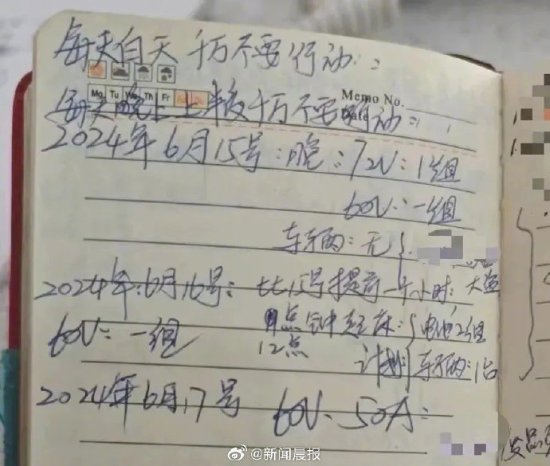 每天白天千万不要行动:
Mo Tu We Th Fr
Memo No.
Date
每天晚上上半夜千万不要行动:
2024年6月15号:晚:72V:1组
60V:一组
车辆:无
2024年:6月16号:比15号提前一个小时:大盗
60V:一组
11点钟起床:电池2组
12点
计划 车辆:1台
2024年6月17号 60V、50A:
@新闻晨报